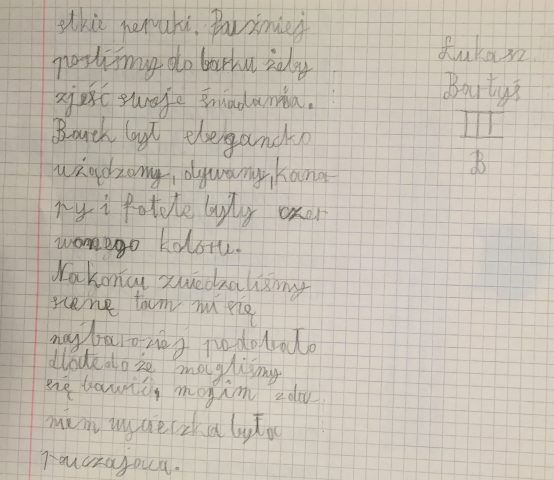 stkie peruki. Puźniej
poszliśmy do barku żeby
zjeść swoje śniadania.
Barek był elegancko
użądzony, dywany, kana-
py i fotele były czer
wonego koloru.
Na końcu zwiedzaliśmy
scenę tam mi się
najbardziej podobało
dlatedo że mogliśmy
się bawić, mogim zda
niem wycieczka była
pouczająca.
Łukasz
Bartyś
III
B